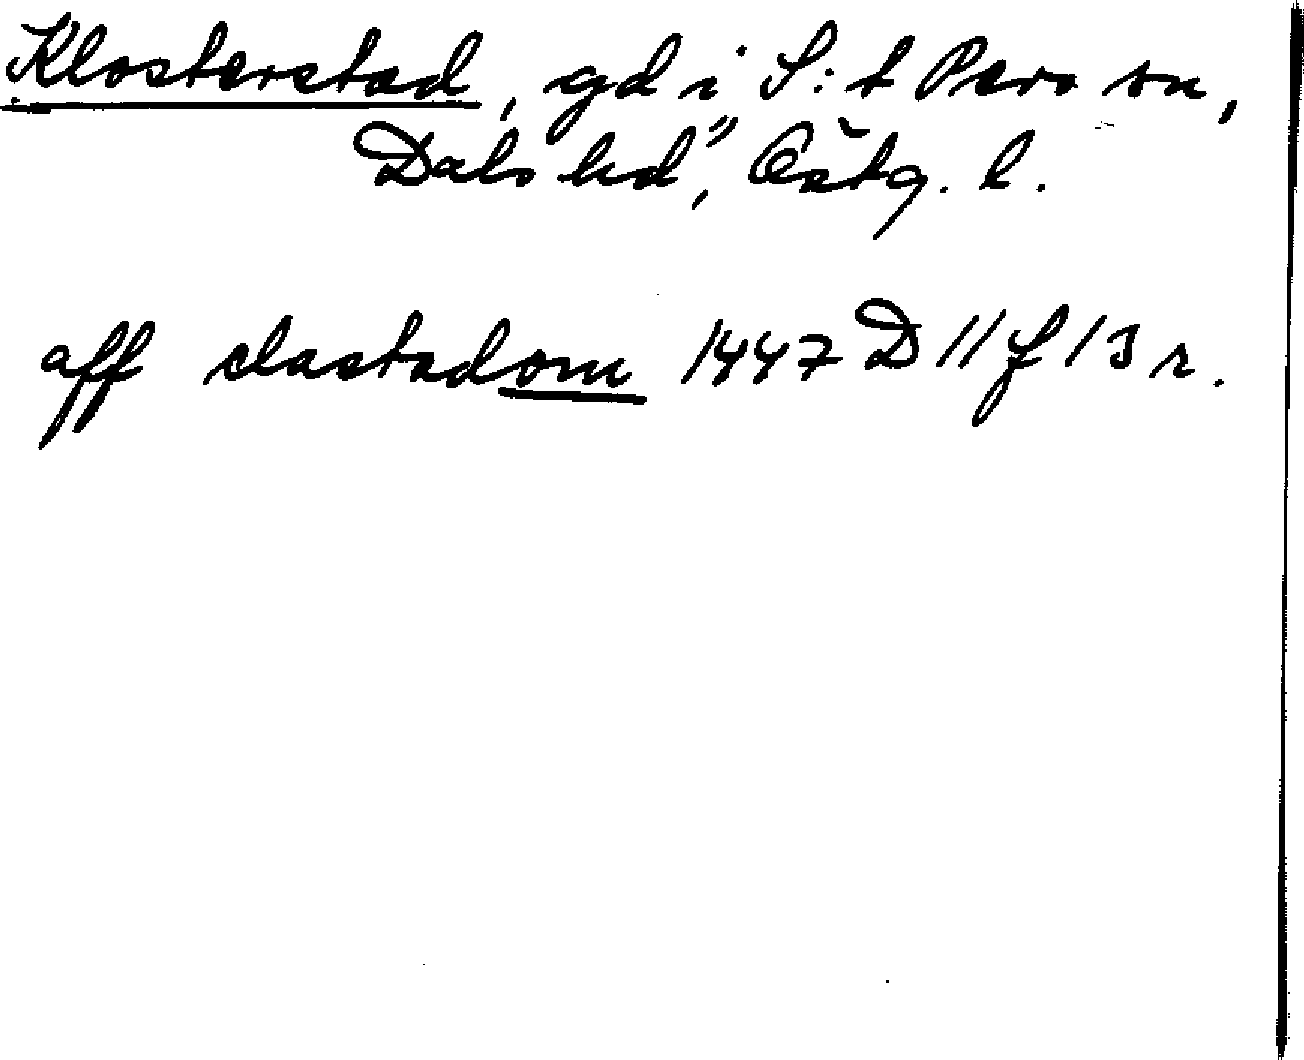 Klosterstad, gd i S:t Pers sn,
Dals hd, Östg. l.
aff clastadom 1447 D 11 f 13 r.